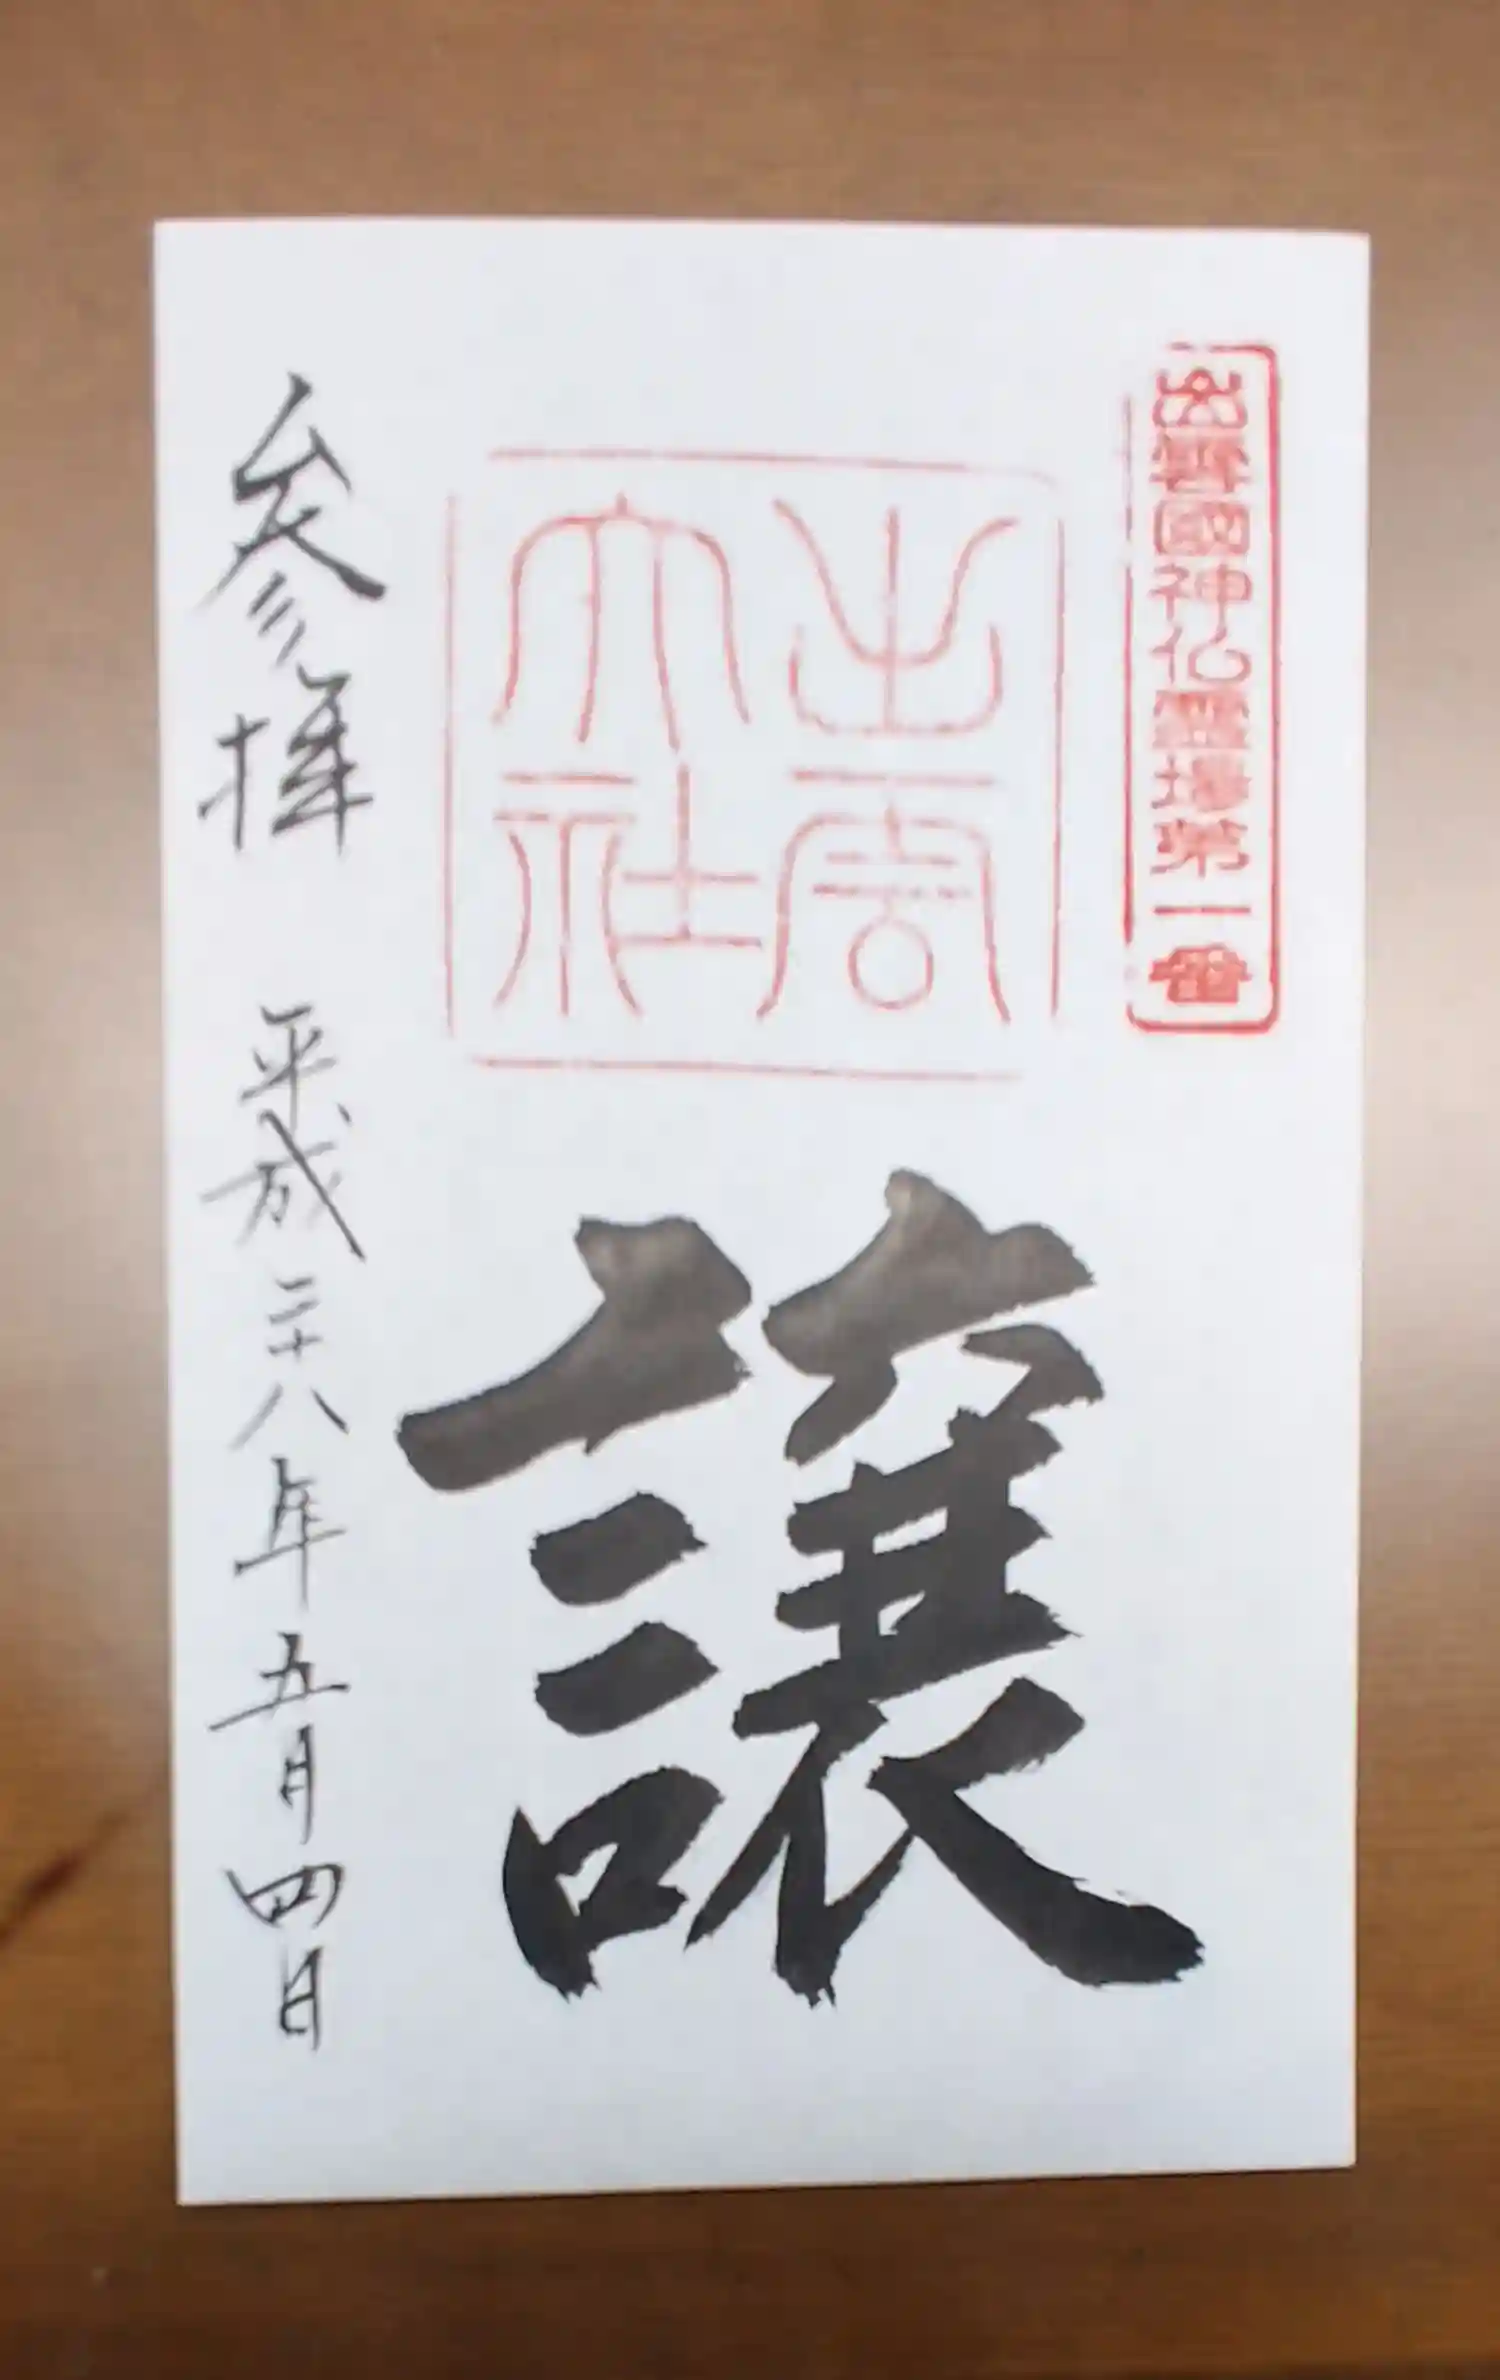 出雲國神仏霊場第一番
出雲
大社
譲
参拝 平成二十八年五月四日